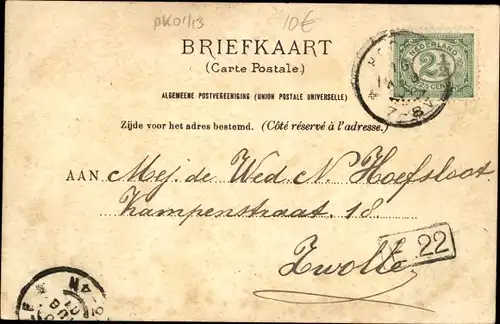 PK01/13
10€
BRIEFKAART
(Carte Postale)
NEDERLAND
2½
CENT
7-8V
ALGEMEENE POSTVEREENIGING (UNION POSTALE UNIVERSELLE)
Zijde voor het adres bestemd. (Côté réservé à l'adresse.)
AAN Mej. de Wed N. Hoefsloot
Kampenstraat 18.
Zwolle
22